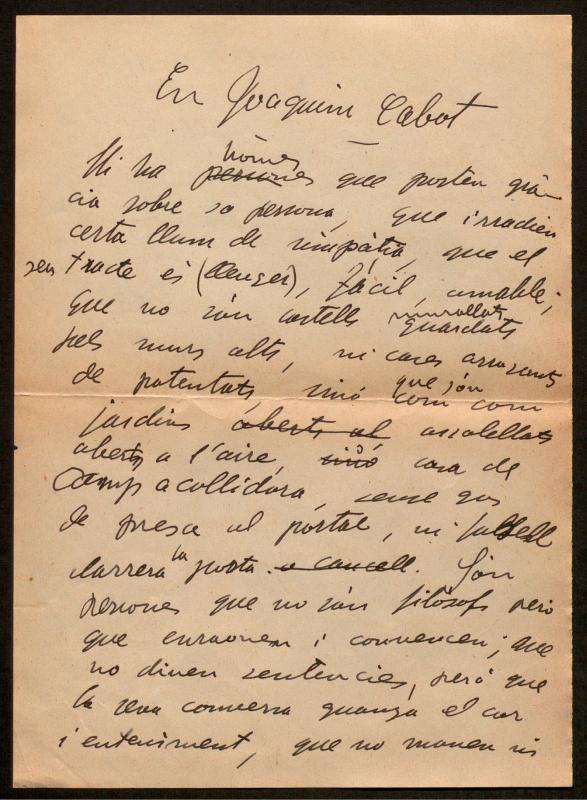 En Joaquim Cabot
hòmes
Hi ha persones que porten grà-
cia sobre sa persona, que irradien
certa llum de simpàtia, que el
seu tracte és (lleuger), fàcil, amable;
que no són castells murallats guardats
pels murs alts, ni cases arrogants
de potentats, sinó que són com com
jardins aberts al assolellats
oberts a l'aire, sinó o casa de
Camp acollidora, sense gos
de presa al portal, ni
darrera la porta. o cancell. Són
persones que no són filòsofs però
que enraonen i convencen; que
no diuen sentencies, però que
la seva conversa guanya el cor
i enteniment, que no manen ni